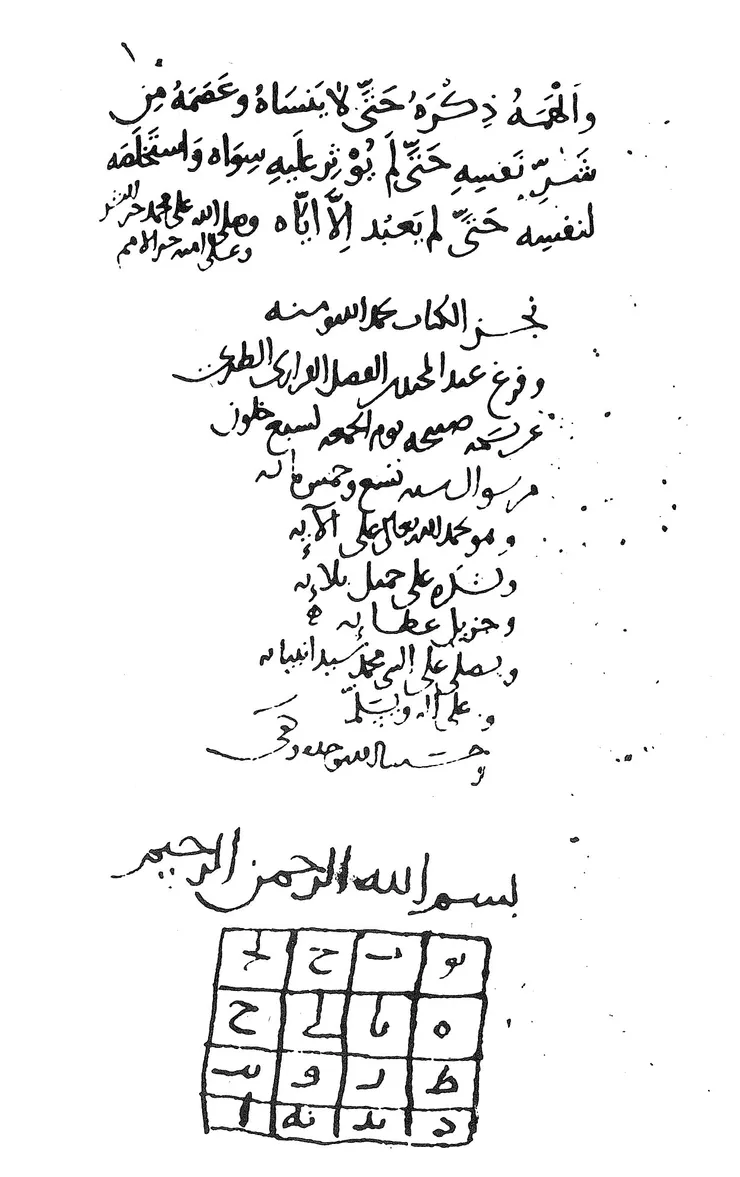 وَأَلْهَمَهُ ذِكْرَهُ حَتَّى لَا يَنسَاهُ وعَصَمَهُ مِن
شَرِّ نَفسِهِ حَتَّى لَم يُؤْثِر عَلَيهِ سِوَاه وَاستَخلَصَه
لنفسِه حَتَّى لم يَعبُد إلَّا ايَّاه وصلى الله على محمد خير البشر
وعلى
نجز الكتاب بحمد الله ومنه
وفرغ عبد الفضل الفزارى الطبرى
صبيحه يوم الجمعه لسبع خلون
من شوال سنه تسع وخمس مائه
وهو يحمد الله تعالى على آلائه
على جميل بلائه
وجزيل عطائه
ويصلى على النبى محمد سيد انبيائه
وعلى اله ويسلم
وحسبنا الله وحده وكفى
بسم الله الرحمن الرحيم